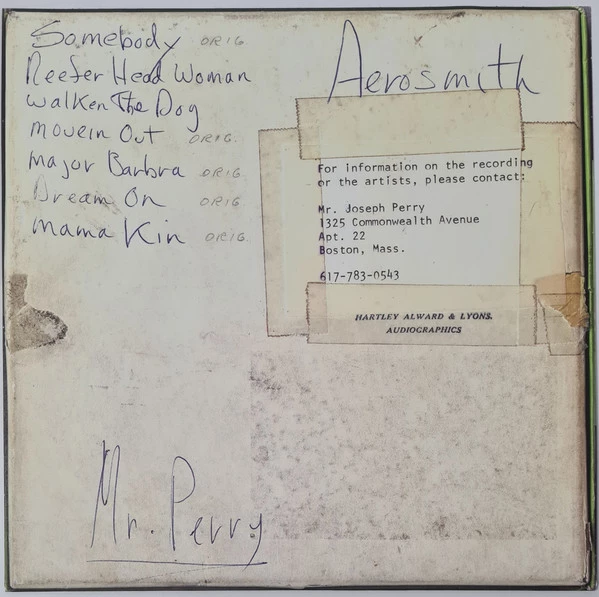 Somebody ORIG
Reefer Head Woman
Walken The Dog
Movein Out ORIG.
Major Barbra ORIG.
Dream On ORIG.
Mama Kin ORIG.
Aerosmith
For information on the recording
or the artists, please contact:
Mr. Joseph Perry
1325 Commonwealth Avenue
Apt. 22
Boston, Mass.
617-783-0543
HARTLEY ALWARD & LYONS.
AUDIOGRAPHICS
Mr. Perry